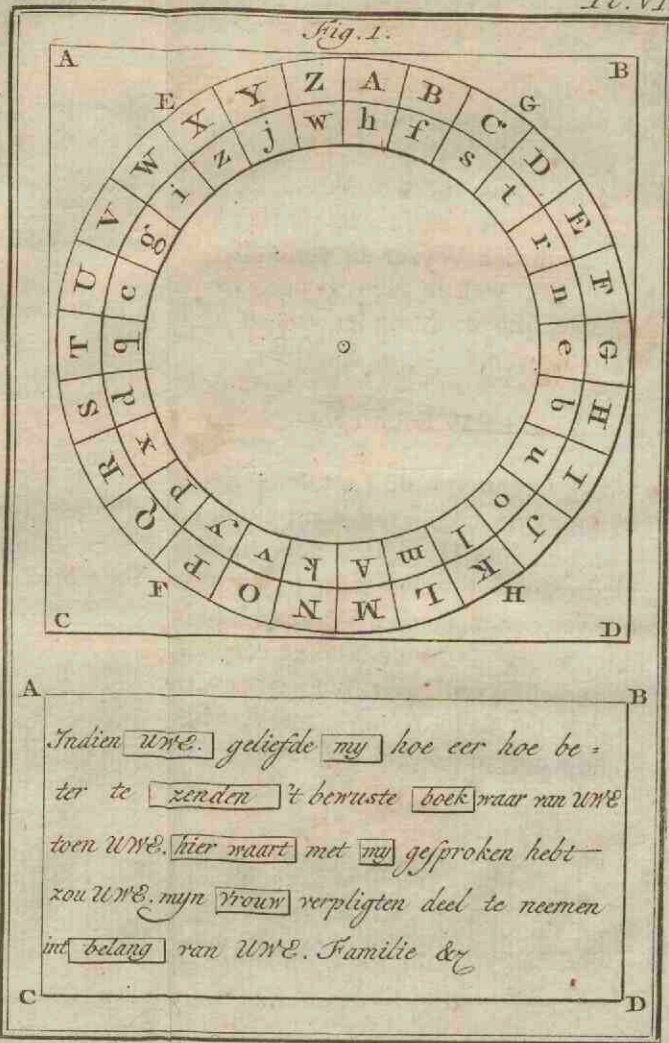 Fig. 1.
A B
E G
A B C D E F G H I J K L M N O P Q R S T U V W X Y Z
h f s t r n e b u o l m A k v y p x d q c g i z j w
F H
C D
A B
Indien UWE. geliefde my hoe eer hoe be =
ter te zenden 't bewuste boek waar van UWE
toen UWE. hier waart met my gesproken hebt —
zou UWE. myn Vrouw verpligten deel te neemen
int belang van UWE. Familie &c
C D